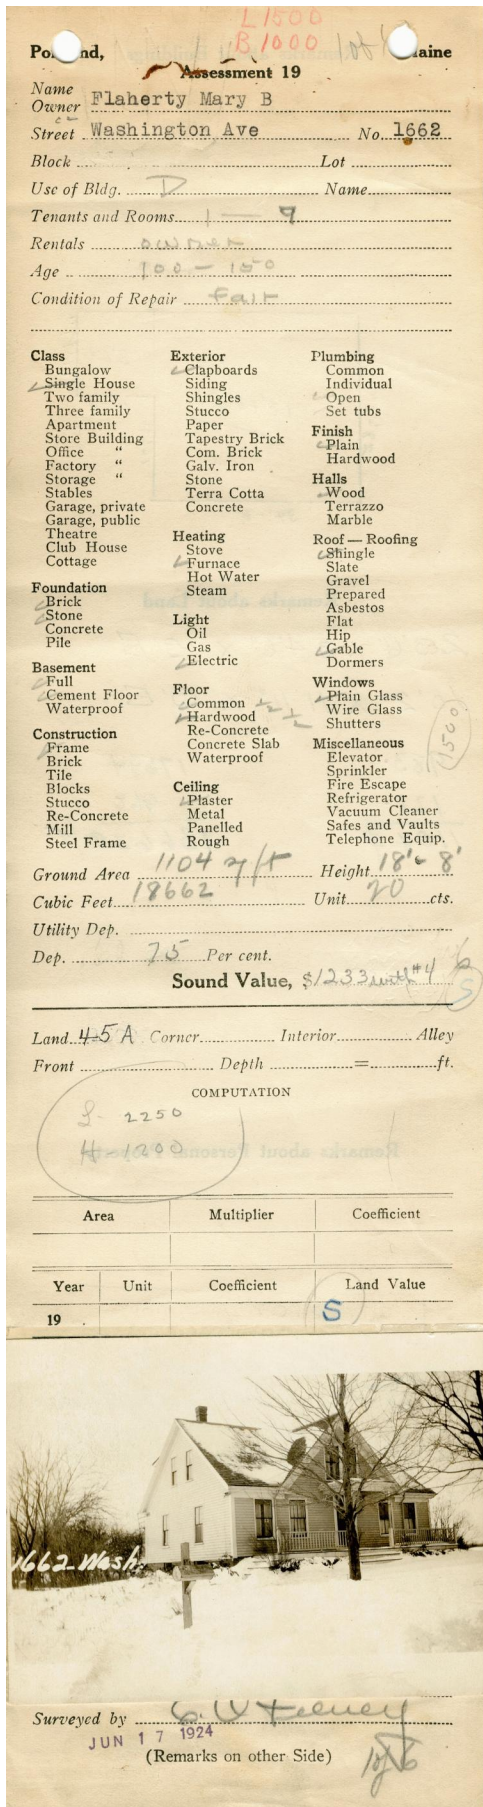 L 1500
B 1000
1 of
Assessment 19
Name
Owner Flaherty Mary B
Street Washington Ave No. 1662
Block Lot
Use of Bldg. D Name
Tenants and Rooms 1 — 9
Rentals owner
Age 100 - 150
Condition of Repair Fair
Class
Bungalow
Single House
Two family
Three family
Apartment
Store Building
Office "
Factory "
Storage "
Stables
Garage, private
Garage, public
Theatre
Club House
Cottage
Foundation
Brick
Stone
Concrete
Pile
Basement
Full
Cement Floor
Waterproof
Construction
Frame
Brick
Tile
Blocks
Stucco
Re-Concrete
Mill
Steel Frame
Exterior
Clapboards
Siding
Shingles
Stucco
Paper
Tapestry Brick
Com. Brick
Galv. Iron
Stone
Terra Cotta
Concrete
Heating
Stove
Furnace
Hot Water
Steam
Light
Oil
Gas
Electric
Floor
Common 1/2
Hardwood 1/2
Re-Concrete
Concrete Slab
Waterproof
Ceiling
Plaster
Metal
Panelled
Rough
Plumbing
Common
Individual
Open
Set tubs
Finish
Plain
Hardwood
Halls
Wood
Terrazzo
Marble
Roof — Roofing
Shingle
Slate
Gravel
Prepared
Asbestos
Flat
Hip
Gable
Dormers
Windows
Plain Glass
Wire Glass
Shutters
1500
Miscellaneous
Elevator
Sprinkler
Fire Escape
Refrigerator
Vacuum Cleaner
Safes and Vaults
Telephone Equip.
Ground Area 1104 sq ft Height 18' - 8'
Cubic Feet 18662 Unit 20 cts.
Utility Dep.
Dep. 75 Per cent.
Sound Value, $1233 with #4
S
Land 45 A Corner Interior Alley
Front Depth = ft.
COMPUTATION
L - 2250
H - 1200
Area Multiplier Coefficient
Year Unit Coefficient Land Value
19 S
1662 Wash.
Surveyed by
JUN 17 1924
(Remarks on other Side)
1 of 6